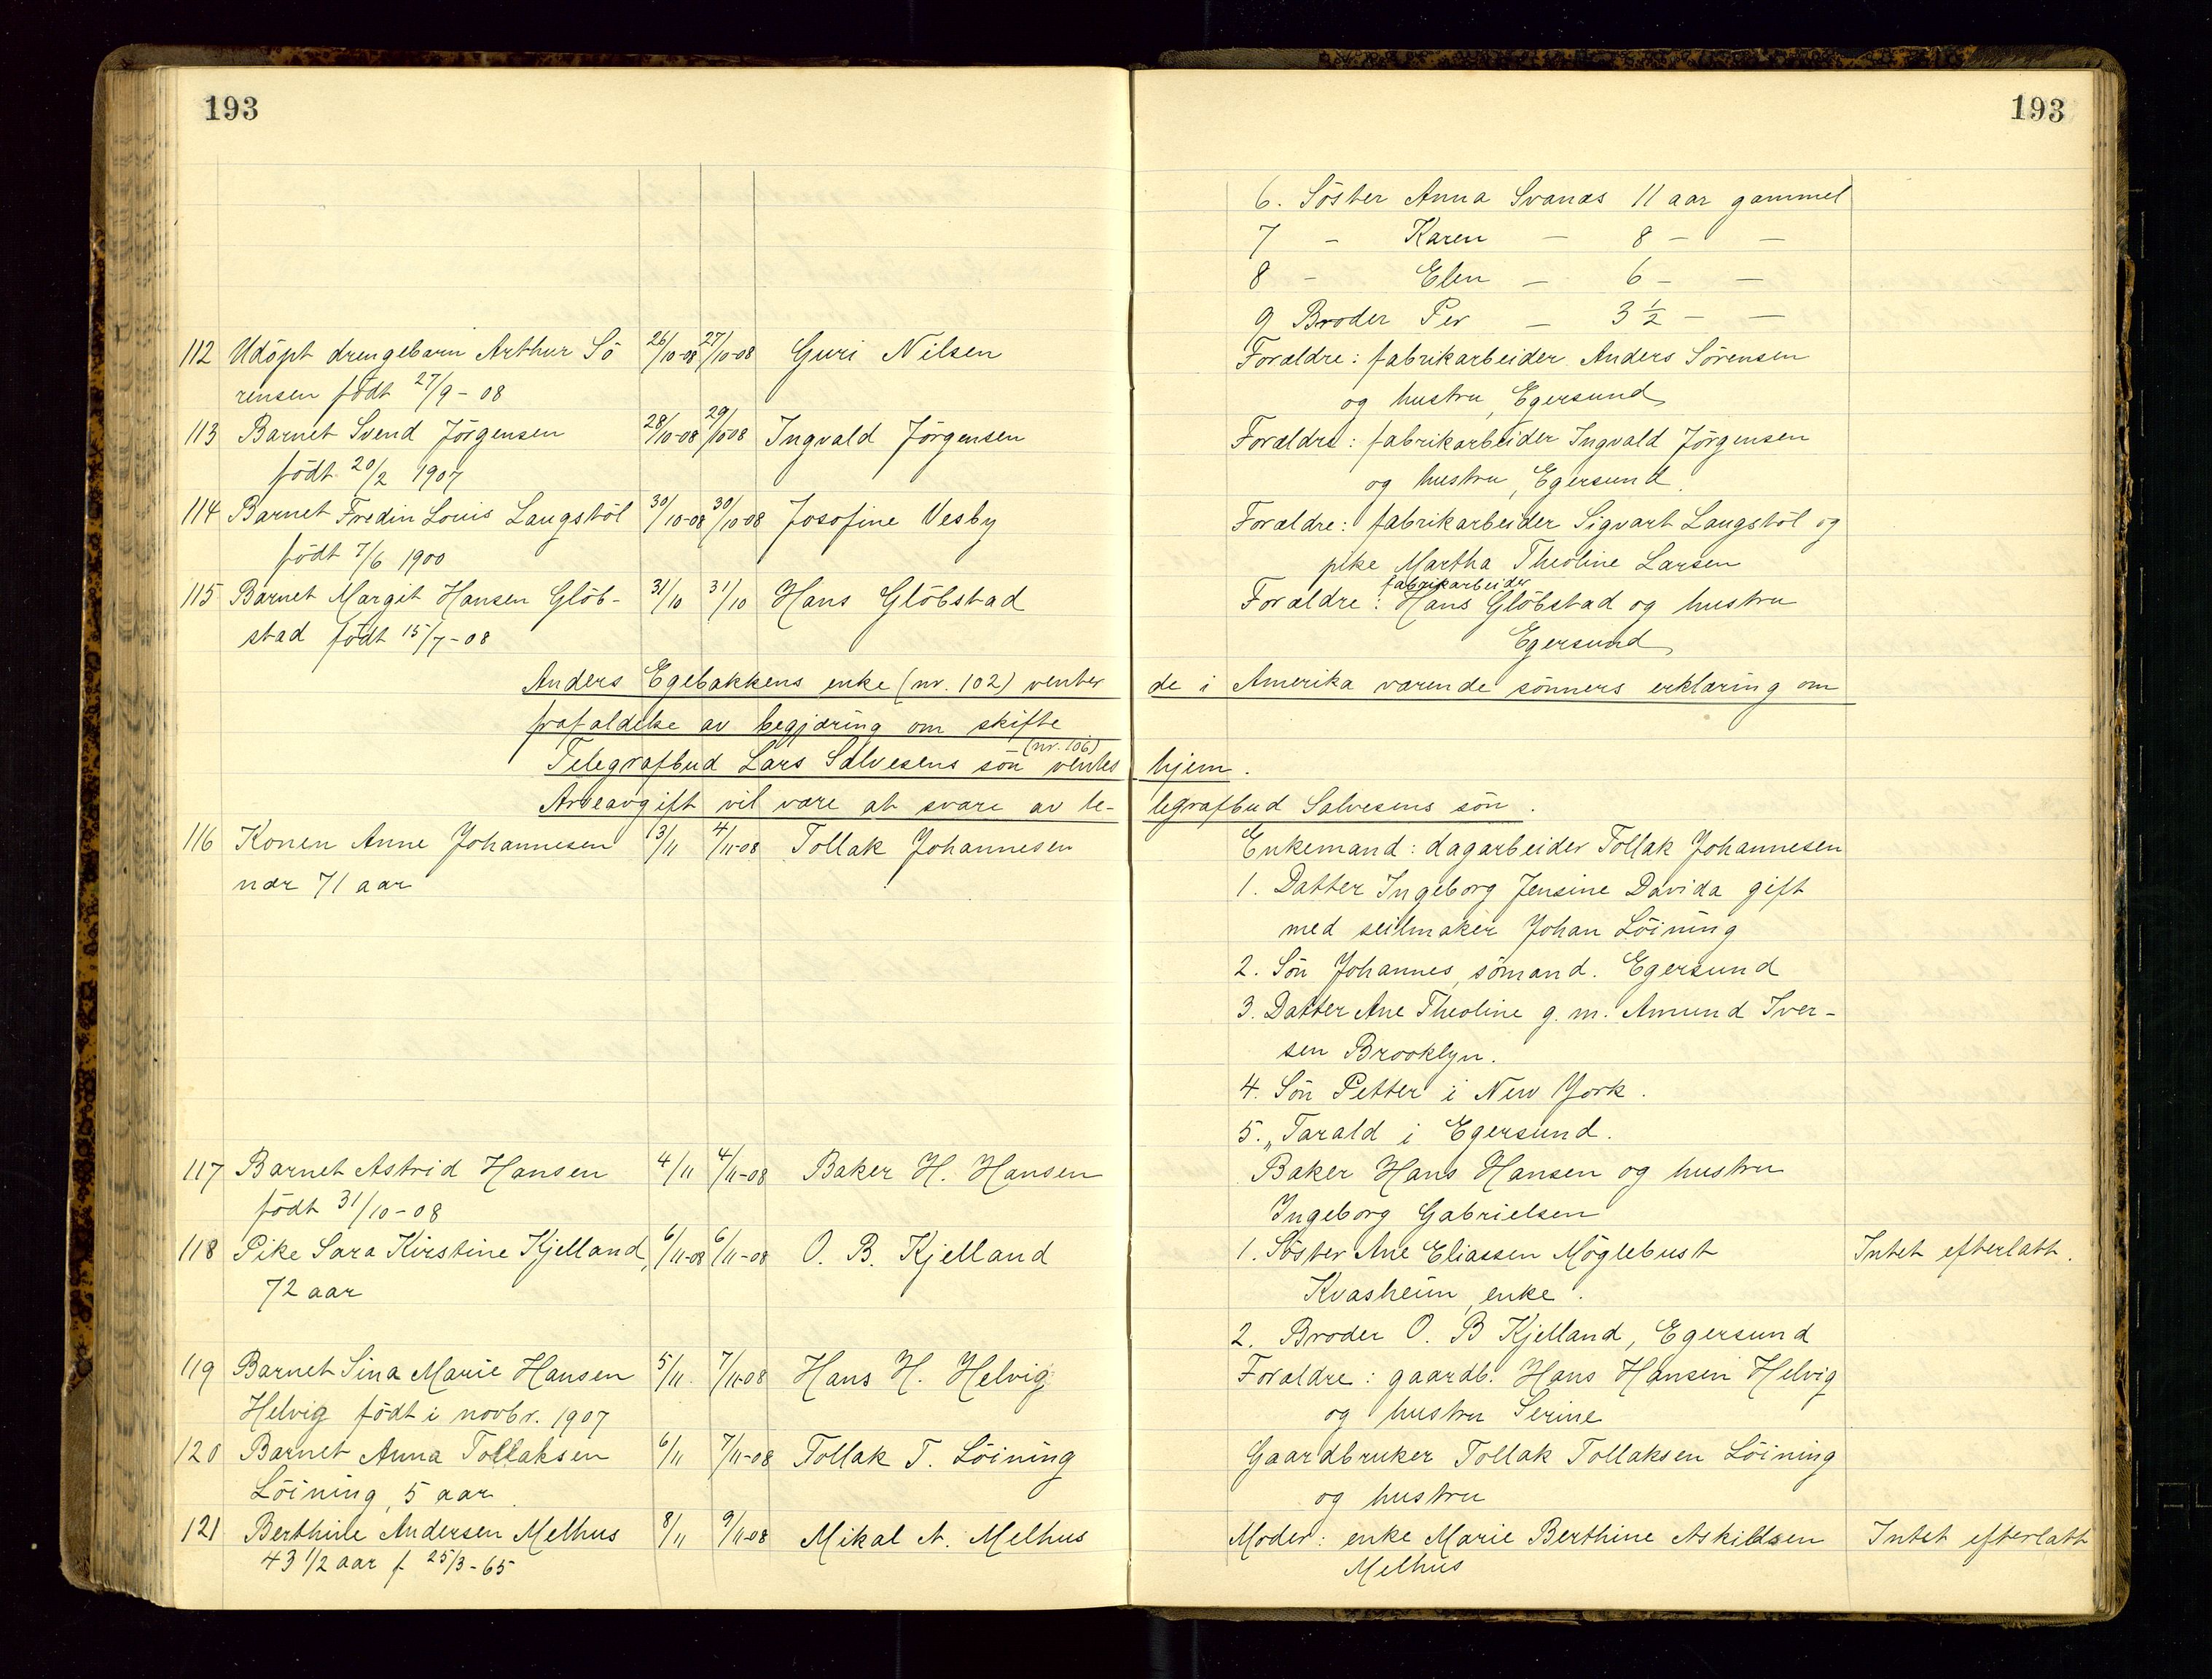 193
112 Udöpt drengebarn Arthur Sö 26/10-08 27/10-08 Guri Nilsen
rensen födt 27/9-08
113 Barnet Svend Jörgensen 28/10-08 29/10-08 Ingvald Jörgensen
födt 20/2 1907
114 Barnet Fredin Louis Laugstöl 30/10-08 30/10-08 Josofine Vesby
födt 7/6 1900
115 Barnet Margit Hansen Glöb- 31/10 31/10 Hans Glöbstad
stad födt 15/7-08
Anders Egebakkens enke (nr. 102) venter de i Amerika værende sönners erklæring om
frafaldelse av begjæring om skifte
Telegrafbud Lars Salvesens sön (nr. 106) ventes hjem.
Arveavgift vil være at svare av te- legrafbud Salvesens sön.
116 Konen Anne Johannesen 3/11 4/11-08 Tollak Johannesen
nær 71 aar
117 Barnet Astrid Hansen 4/11 4/11-08 Baker H. Hansen
födt 31/10-08
118 Pike Sara Kirstine Kjelland, 6/11-08 6/11-08 O. B. Kjelland
72 aar
119 Barnet Sina Marie Hansen 5/11. 7/11-08 Hans H. Helvig
Helvig födt i novbr. 1907
120 Barnet Anna Tollaksen 6/11 7/11-08 Tollak T. Löining
Löining, 5 aar
121 Berthine Andersen Melhus 8/11 9/11-08 Mikal A. Melhus
43 1/2 aar f. 25/3-65
193
6. Söster Anna Svanæs 11 aar gammel
7 - Karen - 8 - -
8 - Elen - 6 - -
9 Broder Per - 3 1/2 - -
Forældre: fabrikarbeider Anders Sörensen
og hustru, Egersund
Forældre: fabrikarbeider Ingvald Jörgensen
og hustru, Egersund.
Forældre: fabrikarbeider Sigvart Laugstöl og
pike Martha Theoline Larsen
fabrikarbeider
Forældre: Hans Glöbstad og hustru
Egersund
Enkemand: dagarbeider Tollak Johannesen
1. Datter Ingeborg Jensine Davida gift
med seilmaker Johan Löining
2. Sön Johannes, sömand. Egersund
3. Datter Ane Theoline g. m. Amund Iver-
sen Brooklyn.
4. Sön Petter i New York.
5. „ Tarald i Egersund.
Baker Hans Hansen og hustru
Ingeborg Gabrielsen
1. Söster Ane Eliassen Möglebust Intet efterlatt.
Kvasheim, enke.
2. Broder O. B Kjelland, Egersund
Forældre: gaardb. Hans Hansen Helvig
og hustru Serine
Gaardbruker Tollak Tollaksen Löining
og hustru
Moder: enke Marie Berthine Askildsen Intet efterlatt
Melhus